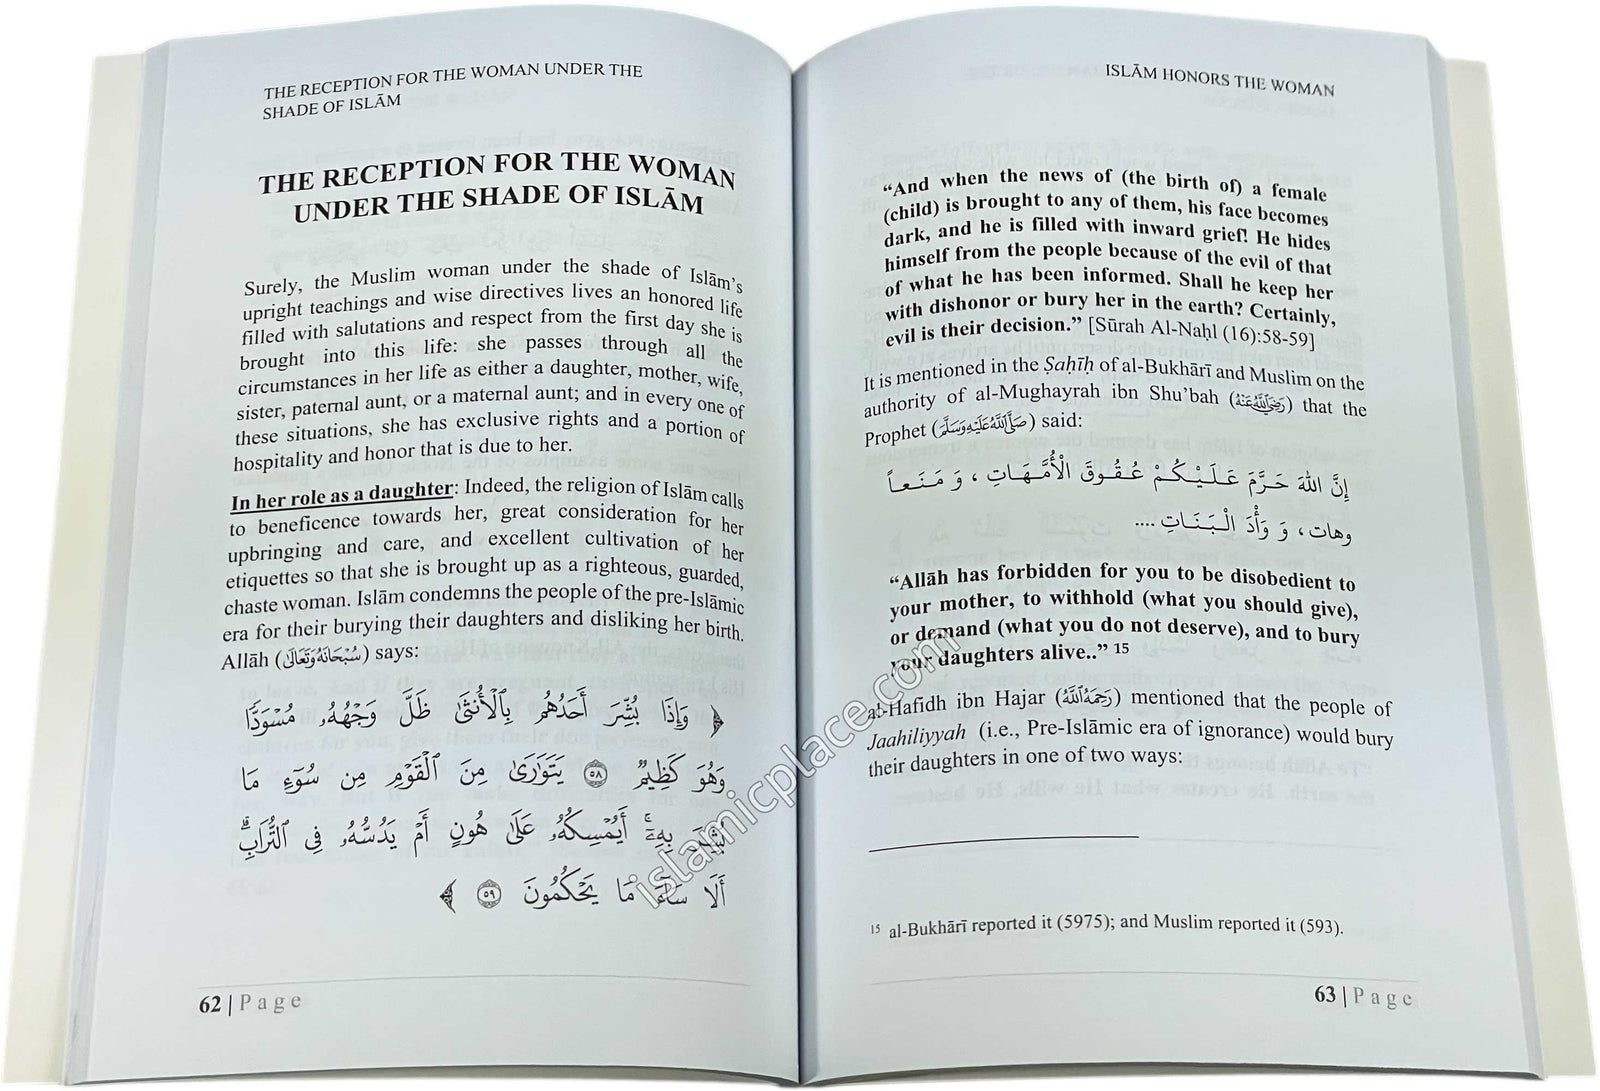 THE RECEPTION FOR THE WOMAN UNDER THE
SHADE OF ISLĀM
THE RECEPTION FOR THE WOMAN
UNDER THE SHADE OF ISLĀM
Surely, the Muslim woman under the shade of Islām's
upright teachings and wise directives lives an honored life
filled with salutations and respect from the first day she is
brought into this life: she passes through all the
circumstances in her life as either a daughter, mother, wife,
sister, paternal aunt, or a maternal aunt; and in every one of
these situations, she has exclusive rights and a portion of
hospitality and honor that is due to her.
In her role as a daughter: Indeed, the religion of Islām calls
to beneficence towards her, great consideration for her
upbringing and care, and excellent cultivation of her
etiquettes so that she is brought up as a righteous, guarded,
chaste woman. Islām condemns the people of the pre-Islāmic
era for their burying their daughters and disliking her birth.
Allāh (سُبْحَانَهُ وَتَعَالَىٰ) says:
﴿ وَإِذَا بُشِّرَ أَحَدُهُم بِٱلْأُنثَىٰ ظَلَّ وَجْهُهُۥ مُسْوَدًّا
وَهُوَ كَظِيمٌ ٥٨ يَتَوَارَىٰ مِنَ ٱلْقَوْمِ مِن سُوٓءِ مَا
بُشِّرَ بِهِۦٓ ۚ أَيُمْسِكُهُۥ عَلَىٰ هُونٍ أَمْ يَدُسُّهُۥ فِى ٱلتُّرَابِ ۗ
أَلَا سَآءَ مَا يَحْكُمُونَ ٥٩ ﴾
62 | Page
ISLĀM HONORS THE WOMAN
“And when the news of (the birth of) a female
(child) is brought to any of them, his face becomes
dark, and he is filled with inward grief! He hides
himself from the people because of the evil of that
of what he has been informed. Shall he keep her
with dishonor or bury her in the earth? Certainly,
evil is their decision.” [Sūrah Al-Naḥl (16):58-59]
It is mentioned in the Ṣaḥīḥ of al-Bukhārī and Muslim on the
authority of al-Mughayrah ibn Shu’bah (رَضِيَ اللَّهُ عَنْهُ) that the
Prophet (صَلَّى اللَّهُ عَلَيْهِ وَسَلَّمَ) said:
إِنَّ اللهَ حَرَّمَ عَلَيْكُمْ عُقُوقَ الْأُمَّهَاتِ ، وَ مَنَعاً
وهات ، وَ وَأْدَ الْبَنَاتِ ....
“Allāh has forbidden for you to be disobedient to
your mother, to withhold (what you should give),
or demand (what you do not deserve), and to bury
your daughters alive..” 15
al-Hafidh ibn Hajar (رَحِمَهُ اللَّهُ) mentioned that the people of
Jaahiliyyah (i.e., Pre-Islāmic era of ignorance) would bury
their daughters in one of two ways:
15 al-Bukhārī reported it (5975); and Muslim reported it (593).
63 | Page
islamicplace.com